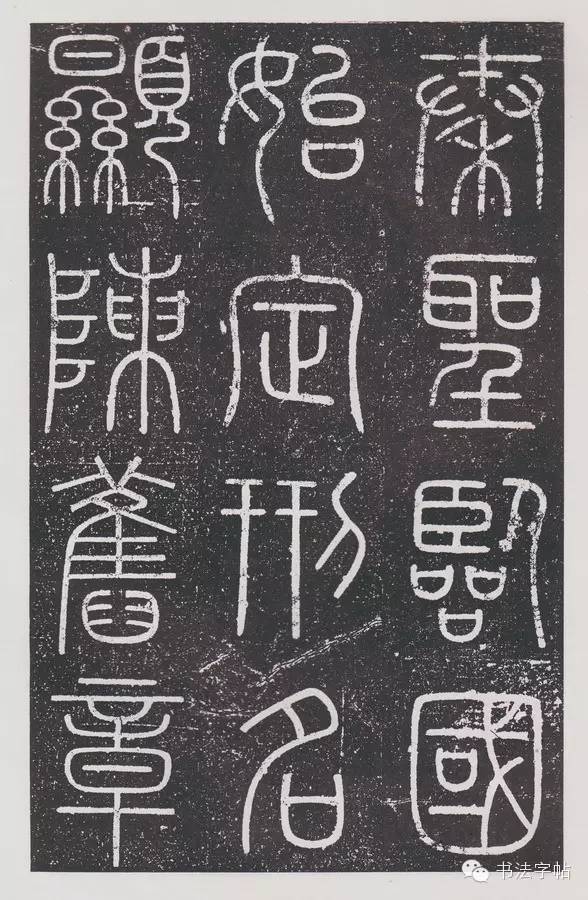 秦聖臨國
始定刑名
顯陳舊章
书法字帖